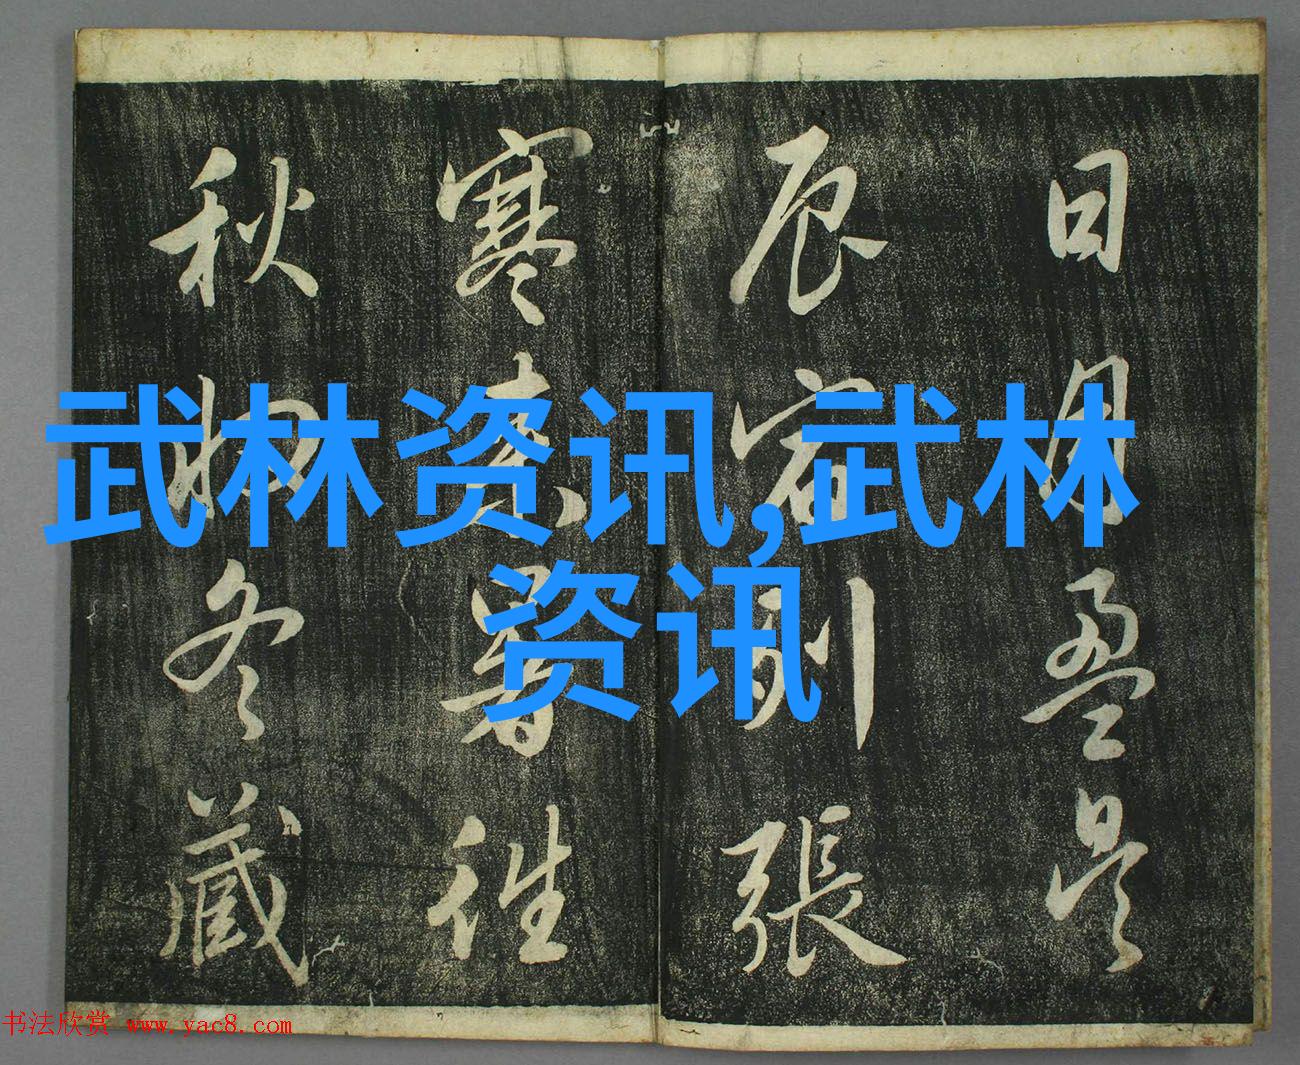 日月盈昃
辰宿列張
寒來暑往
秋收冬藏
武林资讯,武林
资讯
书法欣赏 www.yac8.com